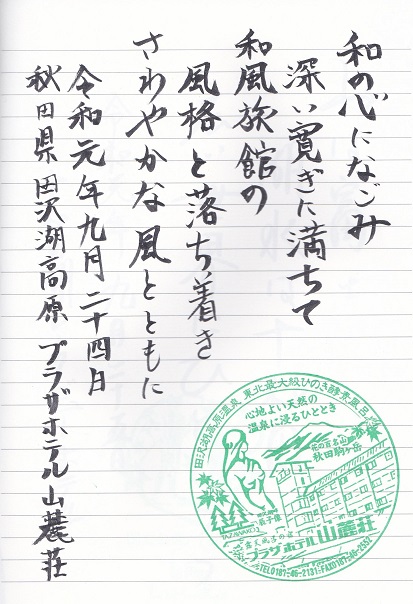 和の心になごみ
深い寛ぎに満ちて
和風旅館の
風格と落ち着き
さわやかな風とともに
令和元年九月二十四日
秋田県田沢湖高原 プラザホテル山麓荘
田沢湖高原温泉 東北最大級ひのき酵素風呂
心地よい天然の
温泉に浸るひととき
花の百名山
秋田駒ヶ岳
辰子像
TAZAWAKO
露天風呂の宿
プラザホテル山麓荘
TEL0187-46-2131・FAX0187-46-2552